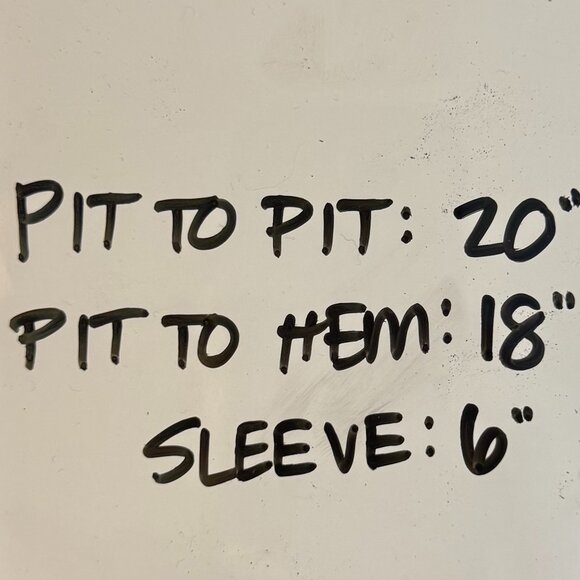 PIT TO PIT: 20"
PIT TO HEM: 18"
SLEEVE: 6"